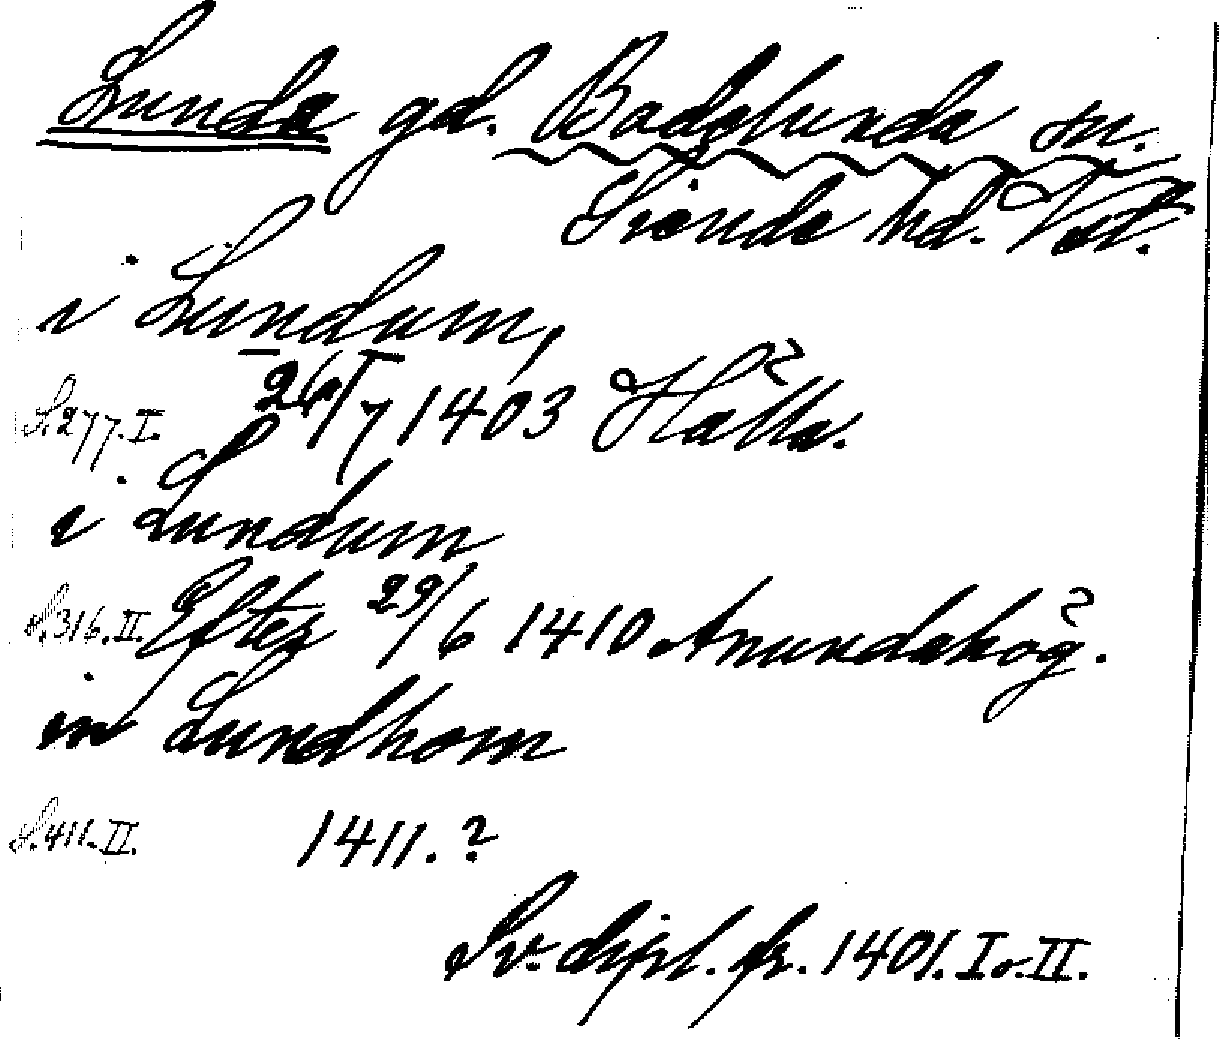 Lunda gd. Badelunda sn.
Siende hd. Vstl.
i Lundum,
S. 277. I. 26/7 1403 Hälla.
i Lundum
S. 316. II. Efter 29/6 1410 Anundahög.
in Lundhom
S. 411. II. 1411. ?
Sv. dipl. fr. 1401. I o. II.